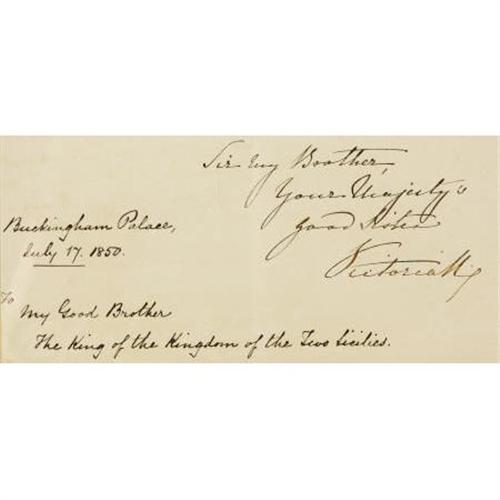 Sir my Brother,
Your Majesty's
good Sister
Victoria R
Buckingham Palace,
July 17. 1850.
To
My Good Brother
The King of the Kingdom of the Two Sicilies.